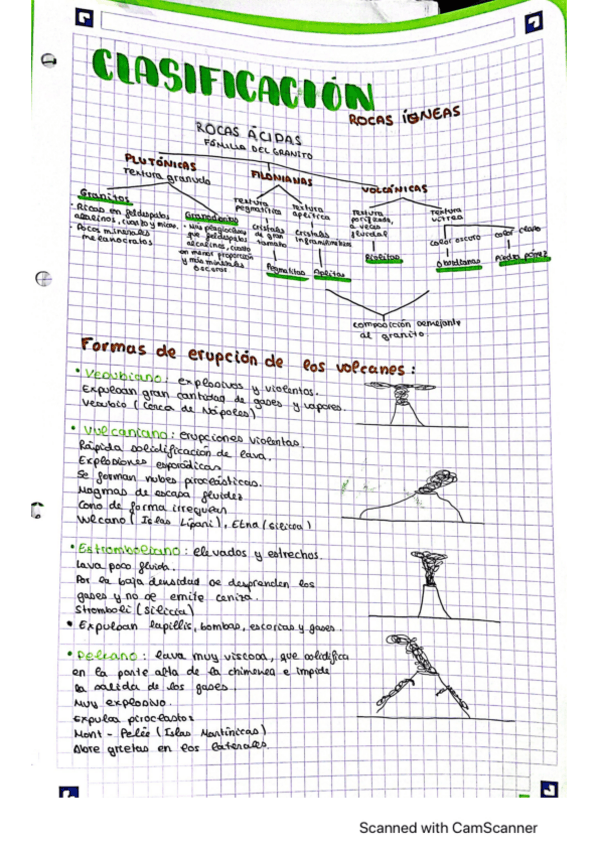 CLASIFICACIÓN
ROCAS ÍGNEAS
ROCAS ÁCIDAS
FAMILIA DEL GRANITO
PLUTÓNICAS
Textura granuda
Granitos
· Ricas en feldespatos
alcalinos, cuarzo y micas.
· Pocos minerales
melanocratos
Granodiorito
· más plagioclasas
que feldespatos
alcalinos, cuarzo
en menor proporción
y más minerales
oscuros
FILONIANAS
textura
pegmatítica
cristales
de gran
tamaño
Pegmatitas
textura
aplítica
cristales
Aplitas
VOLCÁNICAS
textura
a veces
fluidal
Riolitas
textura
vítrea
color oscuro
Obsidianas
color claro
Piedra pómez
composición semejante
al granito
Formas de erupción de los volcanes:
• Vesubiano: explosivos y violentos.
Expulsan gran cantidad de gases y vapores.
Vesubio (Cerca de Nápoles)
• Vulcaniano: erupciones violentas.
Rápida solidificación de lava.
Explosiones esporádicas
Se forman nubes piroclásticas.
Magmas de escasa fluidez
Cono de forma irregular
Vulcano (Islas Lípari), Etna (Silicia)
• Estromboliano: elevados y estrechos.
Lava poco fluida.
Por la baja densidad se desprenden los
gases y no se emite ceniza.
Stromboli (Silicia)
• Expulsan lapillis, bombas, escorias y gases.
• Peleano: lava muy viscosa, que solidifica
en la parte alta de la chimenea e impide
la salida de los gases.
Muy explosivo.
Expulsa piroclastos
Mont - Pelée (Islas Martinicas)
Abre grietas en los laterales.
Scanned with CamScanner